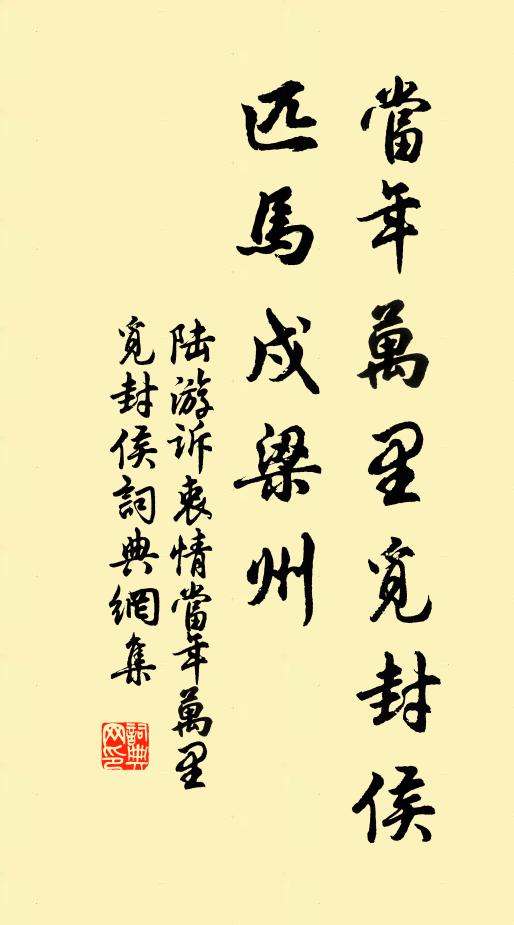 當年萬里覓封侯
匹馬戍梁州
陸游訴衷情當年萬里
覓封侯詞典網集
詞典
网印